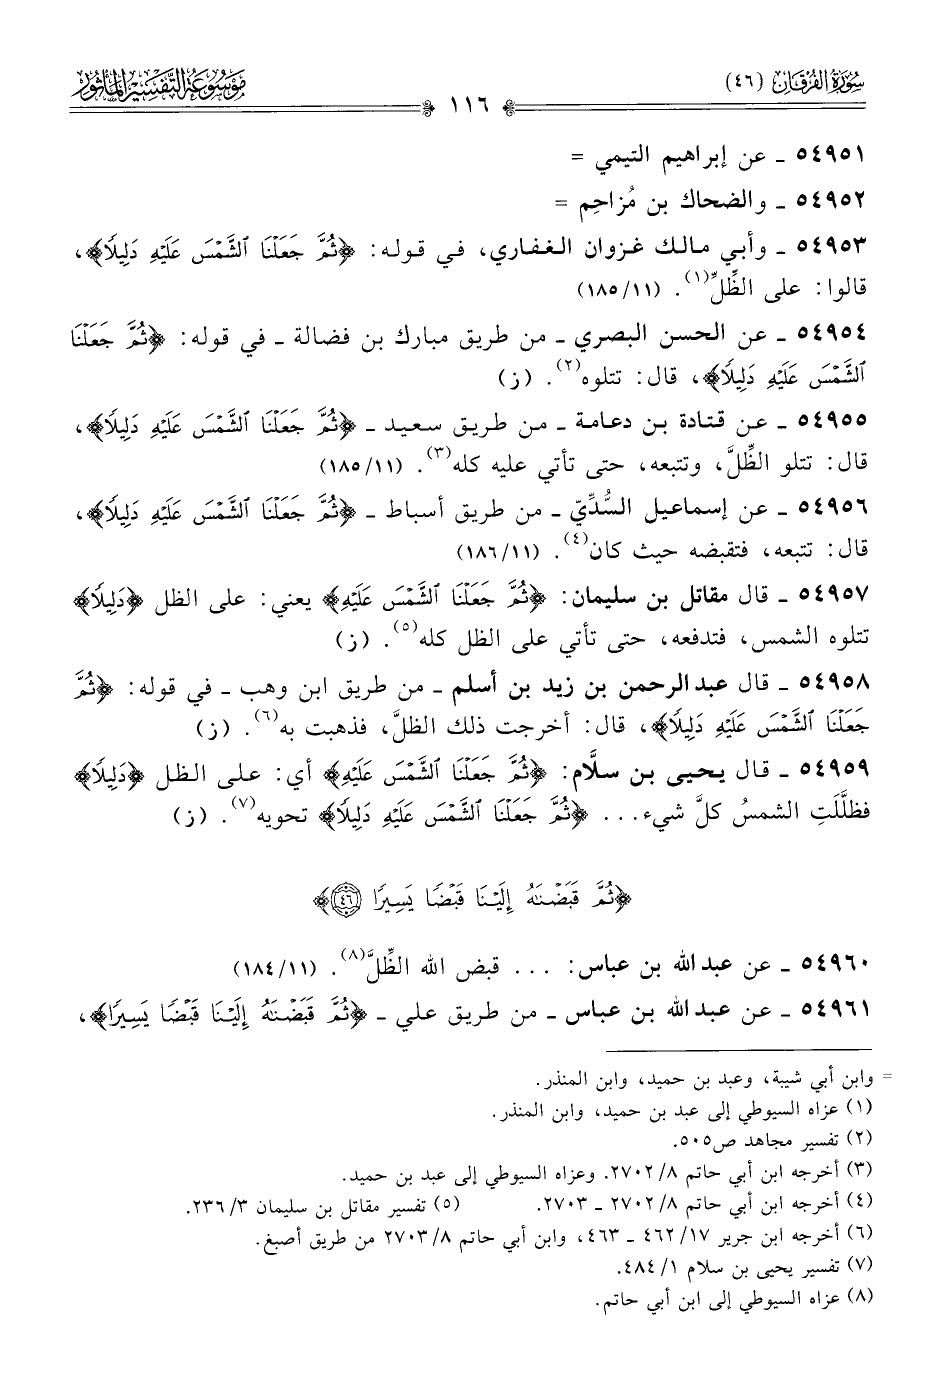 سُورَةُ الفُرْقَان (٤٦)
١١٦
مَوْسُوعَةُ التَّفْسِيرِ المَأْثُور
٥٤٩٥١ ـ عن إبراهيم التيمي =
٥٤٩٥٢ ـ والضحاك بن مُزاحِم =
٥٤٩٥٣ ـ وأبي مالك غزوان الغفاري، في قوله: ﴿ثُمَّ جَعَلْنَا ٱلشَّمْسَ عَلَيْهِ دَلِيلًا﴾،
قالوا: على الظِّلِّ(١). (١١/١٨٥)
٥٤٩٥٤ ـ عن الحسن البصري ـ من طريق مبارك بن فضالة ـ في قوله: ﴿ثُمَّ جَعَلْنَا
ٱلشَّمْسَ عَلَيْهِ دَلِيلًا﴾، قال: تتلوه(٢). (ز)
٥٤٩٥٥ ـ عن قتادة بن دعامة ـ من طريق سعيد ـ ﴿ثُمَّ جَعَلْنَا ٱلشَّمْسَ عَلَيْهِ دَلِيلًا﴾،
قال: تتلو الظِّلَّ، وتتبعه، حتى تأتي عليه كله(٣). (١١/١٨٥)
٥٤٩٥٦ ـ عن إسماعيل السُّدِّيّ ـ من طريق أسباط ـ ﴿ثُمَّ جَعَلْنَا ٱلشَّمْسَ عَلَيْهِ دَلِيلًا﴾،
قال: تتبعه، فتقبضه حيث كان(٤). (١١/١٨٦)
٥٤٩٥٧ ـ قال مقاتل بن سليمان: ﴿ثُمَّ جَعَلْنَا ٱلشَّمْسَ عَلَيْهِ﴾ يعني: على الظل ﴿دَلِيلًا﴾
تتلوه الشمس، فتدفعه، حتى تأتي على الظل كله(٥). (ز)
٥٤٩٥٨ ـ قال عبد الرحمن بن زيد بن أسلم ـ من طريق ابن وهب ـ في قوله: ﴿ثُمَّ
جَعَلْنَا ٱلشَّمْسَ عَلَيْهِ دَلِيلًا﴾، قال: أخرجت ذلك الظلَّ، فذهبت به(٦). (ز)
٥٤٩٥٩ ـ قال يحيى بن سلَّام: ﴿ثُمَّ جَعَلْنَا ٱلشَّمْسَ عَلَيْهِ﴾ أي: على الظل ﴿دَلِيلًا﴾
فظلَّلَتِ الشمسُ كلَّ شيء... ﴿ثُمَّ جَعَلْنَا ٱلشَّمْسَ عَلَيْهِ دَلِيلًا﴾ تحويه(٧). (ز)
﴿ثُمَّ قَبَضْنَٰهُ إِلَيْنَا قَبْضًا يَسِيرًا ٤٦﴾
٥٤٩٦٠ ـ عن عبد الله بن عباس: ... قبض الله الظِّلَّ(٨). (١١/١٨٤)
٥٤٩٦١ ـ عن عبد الله بن عباس ـ من طريق علي ـ ﴿ثُمَّ قَبَضْنَٰهُ إِلَيْنَا قَبْضًا يَسِيرًا﴾،
= وابن أبي شيبة، وعبد بن حميد، وابن المنذر.
(١) عزاه السيوطي إلى عبد بن حميد، وابن المنذر.
(٢) تفسير مجاهد ص٥٠٥.
(٣) أخرجه ابن أبي حاتم ٨/٢٧٠٢. وعزاه السيوطي إلى عبد بن حميد.
(٤) أخرجه ابن أبي حاتم ٨/٢٧٠٢ ـ ٢٧٠٣. (٥) تفسير مقاتل بن سليمان ٣/٢٣٦.
(٦) أخرجه ابن جرير ١٧/٤٦٢ ـ ٤٦٣، وابن أبي حاتم ٨/٢٧٠٣ من طريق أصبغ.
(٧) تفسير يحيى بن سلام ١/٤٨٤.
(٨) عزاه السيوطي إلى ابن أبي حاتم.